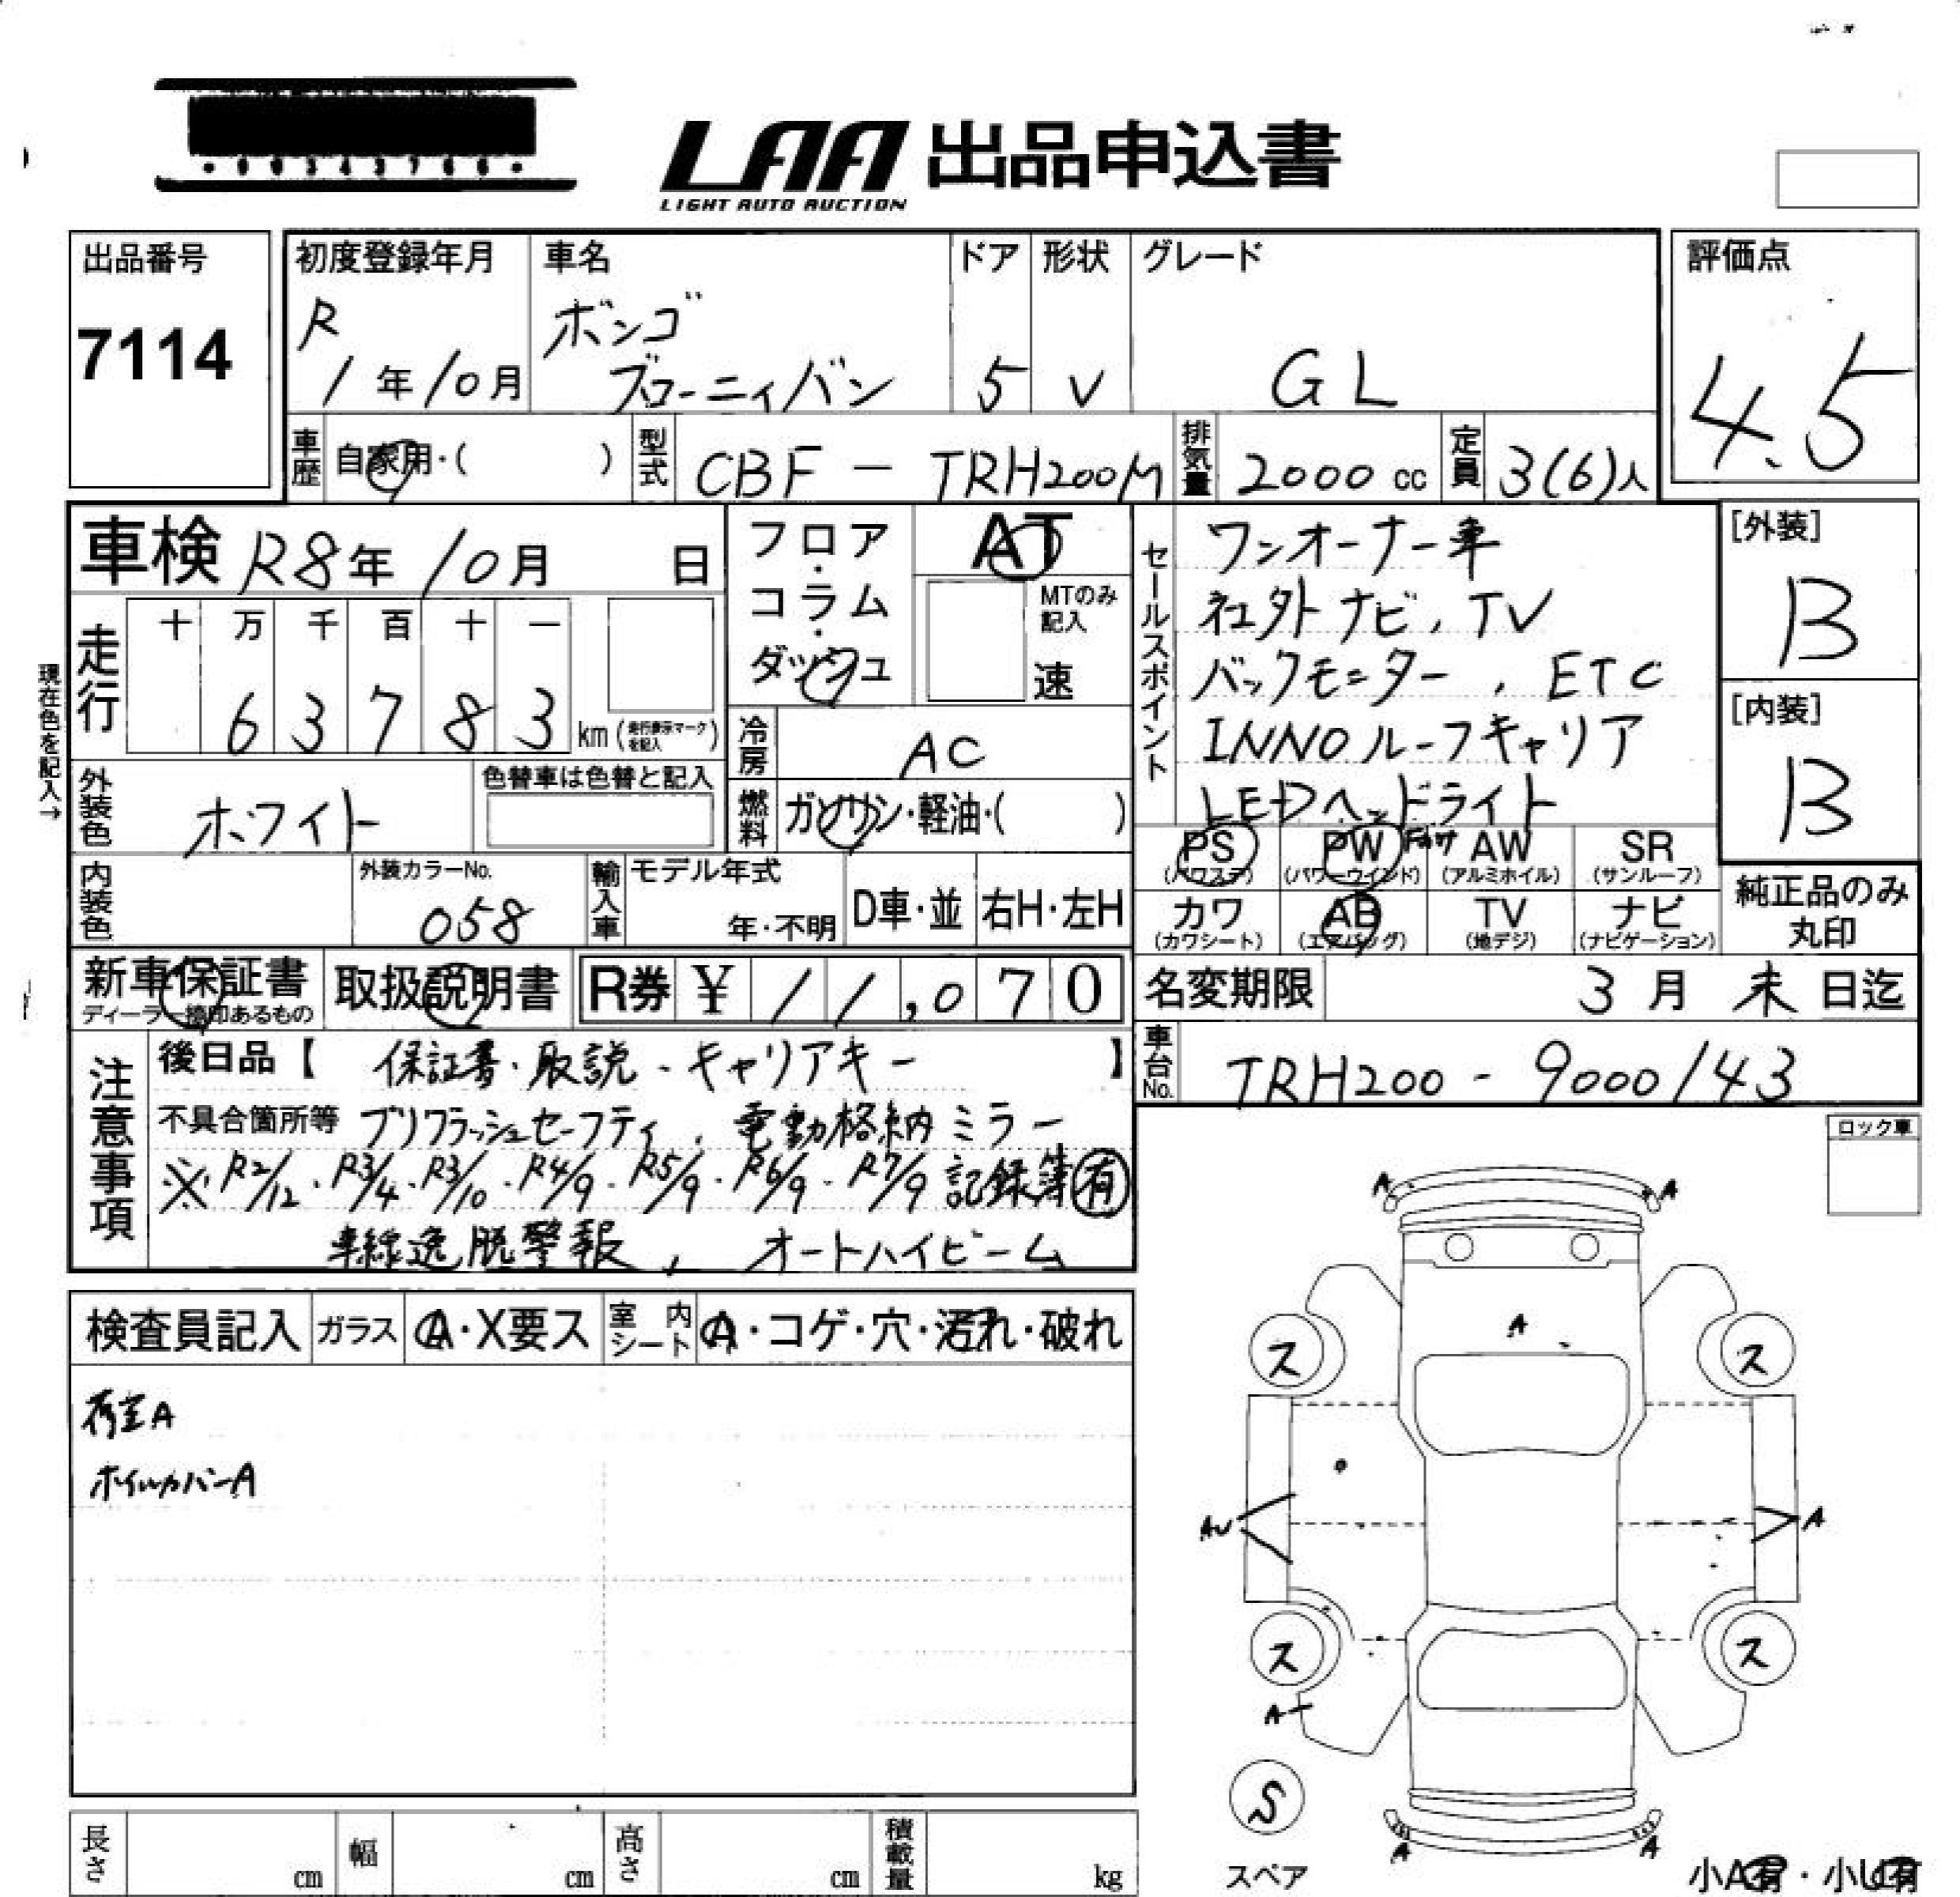 LAA 出品申込書
LIGHT AUTO AUCTION
出品番号
7114
初度登録年月
R
1年10月
車名
ボンゴ
ブローニィバン
ドア
5
形状
V
グレード
GL
評価点
4.5
車歴 自家用・( )
型式 CBF - TRH200M
排気量 2000 cc
定員 3(6)人
車検 R8年 10月 日
走行
十 万 千 百 十 一
6 3 7 8 3 km (走行表示マークを記入)
現在色を記入→
外装色 ホワイト
色替車は色替と記入
内装色
外装カラーNo.
058
輸入車
モデル年式
年・不明
D車・並
右H・左H
フロア・コラム・ダッシュ
AT
MTのみ記入
速
冷房 AC
燃料 ガソリン・軽油・( )
セールスポイント
ワンオーナー車
社外ナビ、TV
バックモニター、ETC
INNOルーフキャリア
LEDヘッドライト
PS (パワステ)
PW (パワーウインド)
AW (アルミホイル)
SR (サンルーフ)
カワ (カワシート)
AB (エアバッグ)
TV (地デジ)
ナビ (ナビゲーション)
[外装]
B
[内装]
B
純正品のみ
丸印
新車保証書
ディーラー捺印あるもの
取扱説明書
R券 ¥ 11,070
名変期限 3月 末日迄
車台No. TRH200 - 9000143
注意事項
後日品【 保証書・取説・キャリアキー 】
不具合箇所等 プリクラッシュセーフティ、電動格納ミラー
※R2/12・R3/4・R3/10・R4/9・R5/9・R6/9・R7/9 記録簿有
車線逸脱警報、オートハイビーム
ロック車
検査員記入
ガラス A・X要ス
室内シート A・コゲ・穴・汚れ・破れ
荷室A
ホイルカバーA
A A
A
ス ス
AU A
ス ス
A
S
スペア
A A
小A有・小U有
長さ cm
幅 cm
高さ cm
積載量 kg